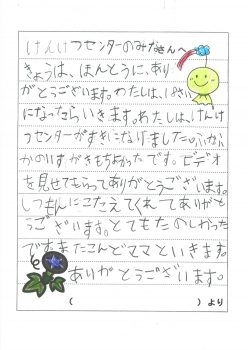 けんけつセンターのみなさんへ
きょうは、ほんとうに、あり
がとうございます。わたしは、18さい
になったらいきます。わたしは、けんけ
つセンターがすきになりました。ふか
ふかのいすがきもちよかったです。ビデオ
を見せてもらってありがとうございます。
しつもんにこたえてくれてありがと
うございます。とてもたのしかった
ですまたこんどママといきます。
ありがとうございます。
( )より